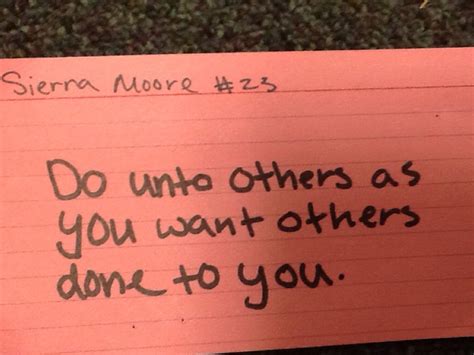 Sierra Moore #23
Do unto others as
you want others
done to you.